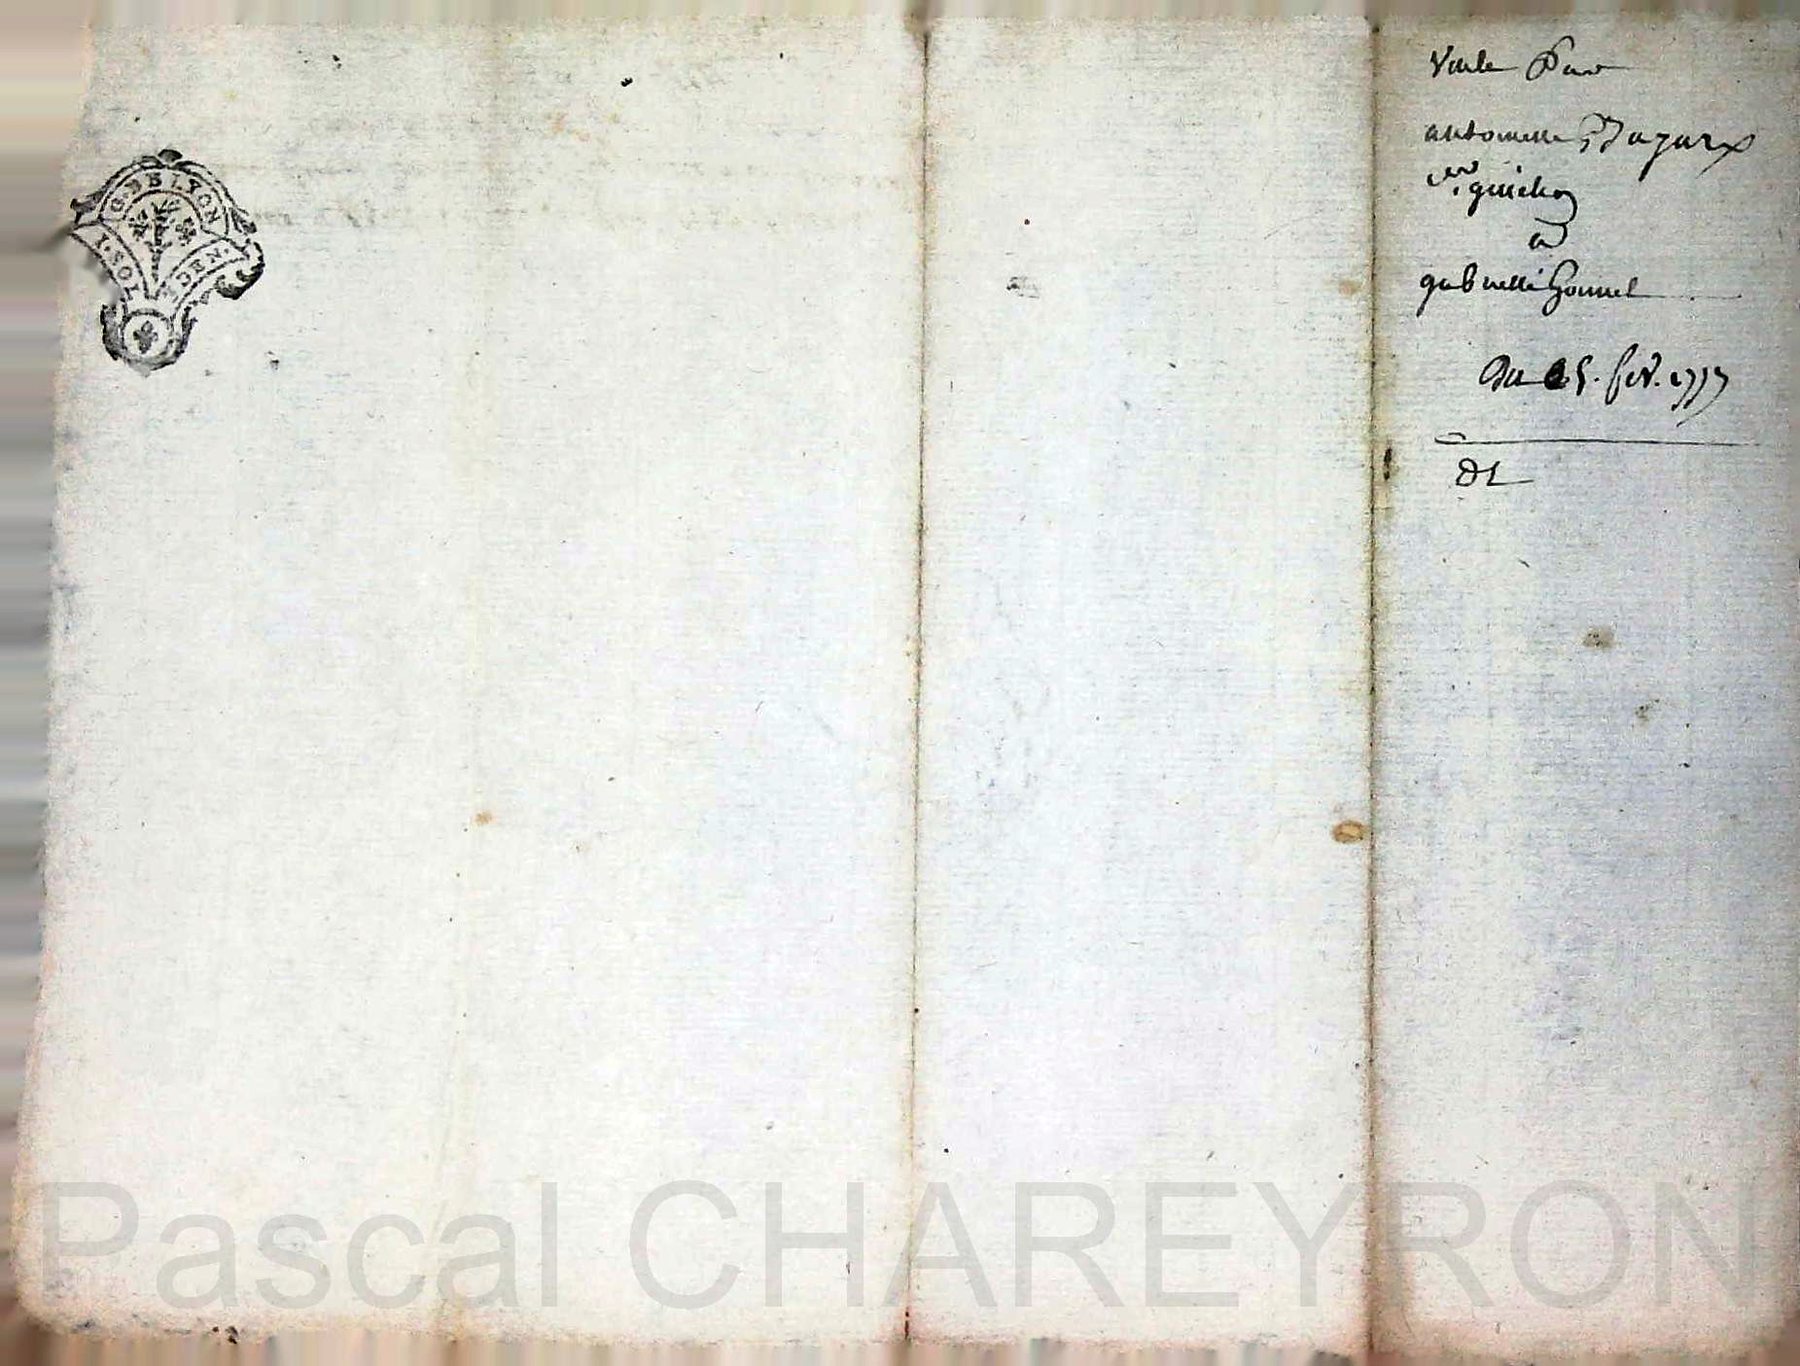 G. DE LYON
1. SOL CEN.
Vente Par
antoinette Bayard
vve. guichon
a
gabrielle Gonnet
Du 25. fev. 1777
Pascal CHAREYRON